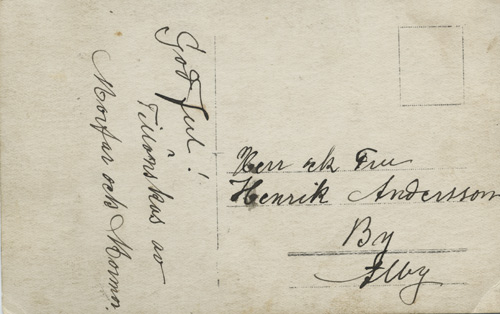 God Jul!
Tillönskas av
Morfar och Mormor.
Herr och Fru
Henrik Andersson
By
Alby